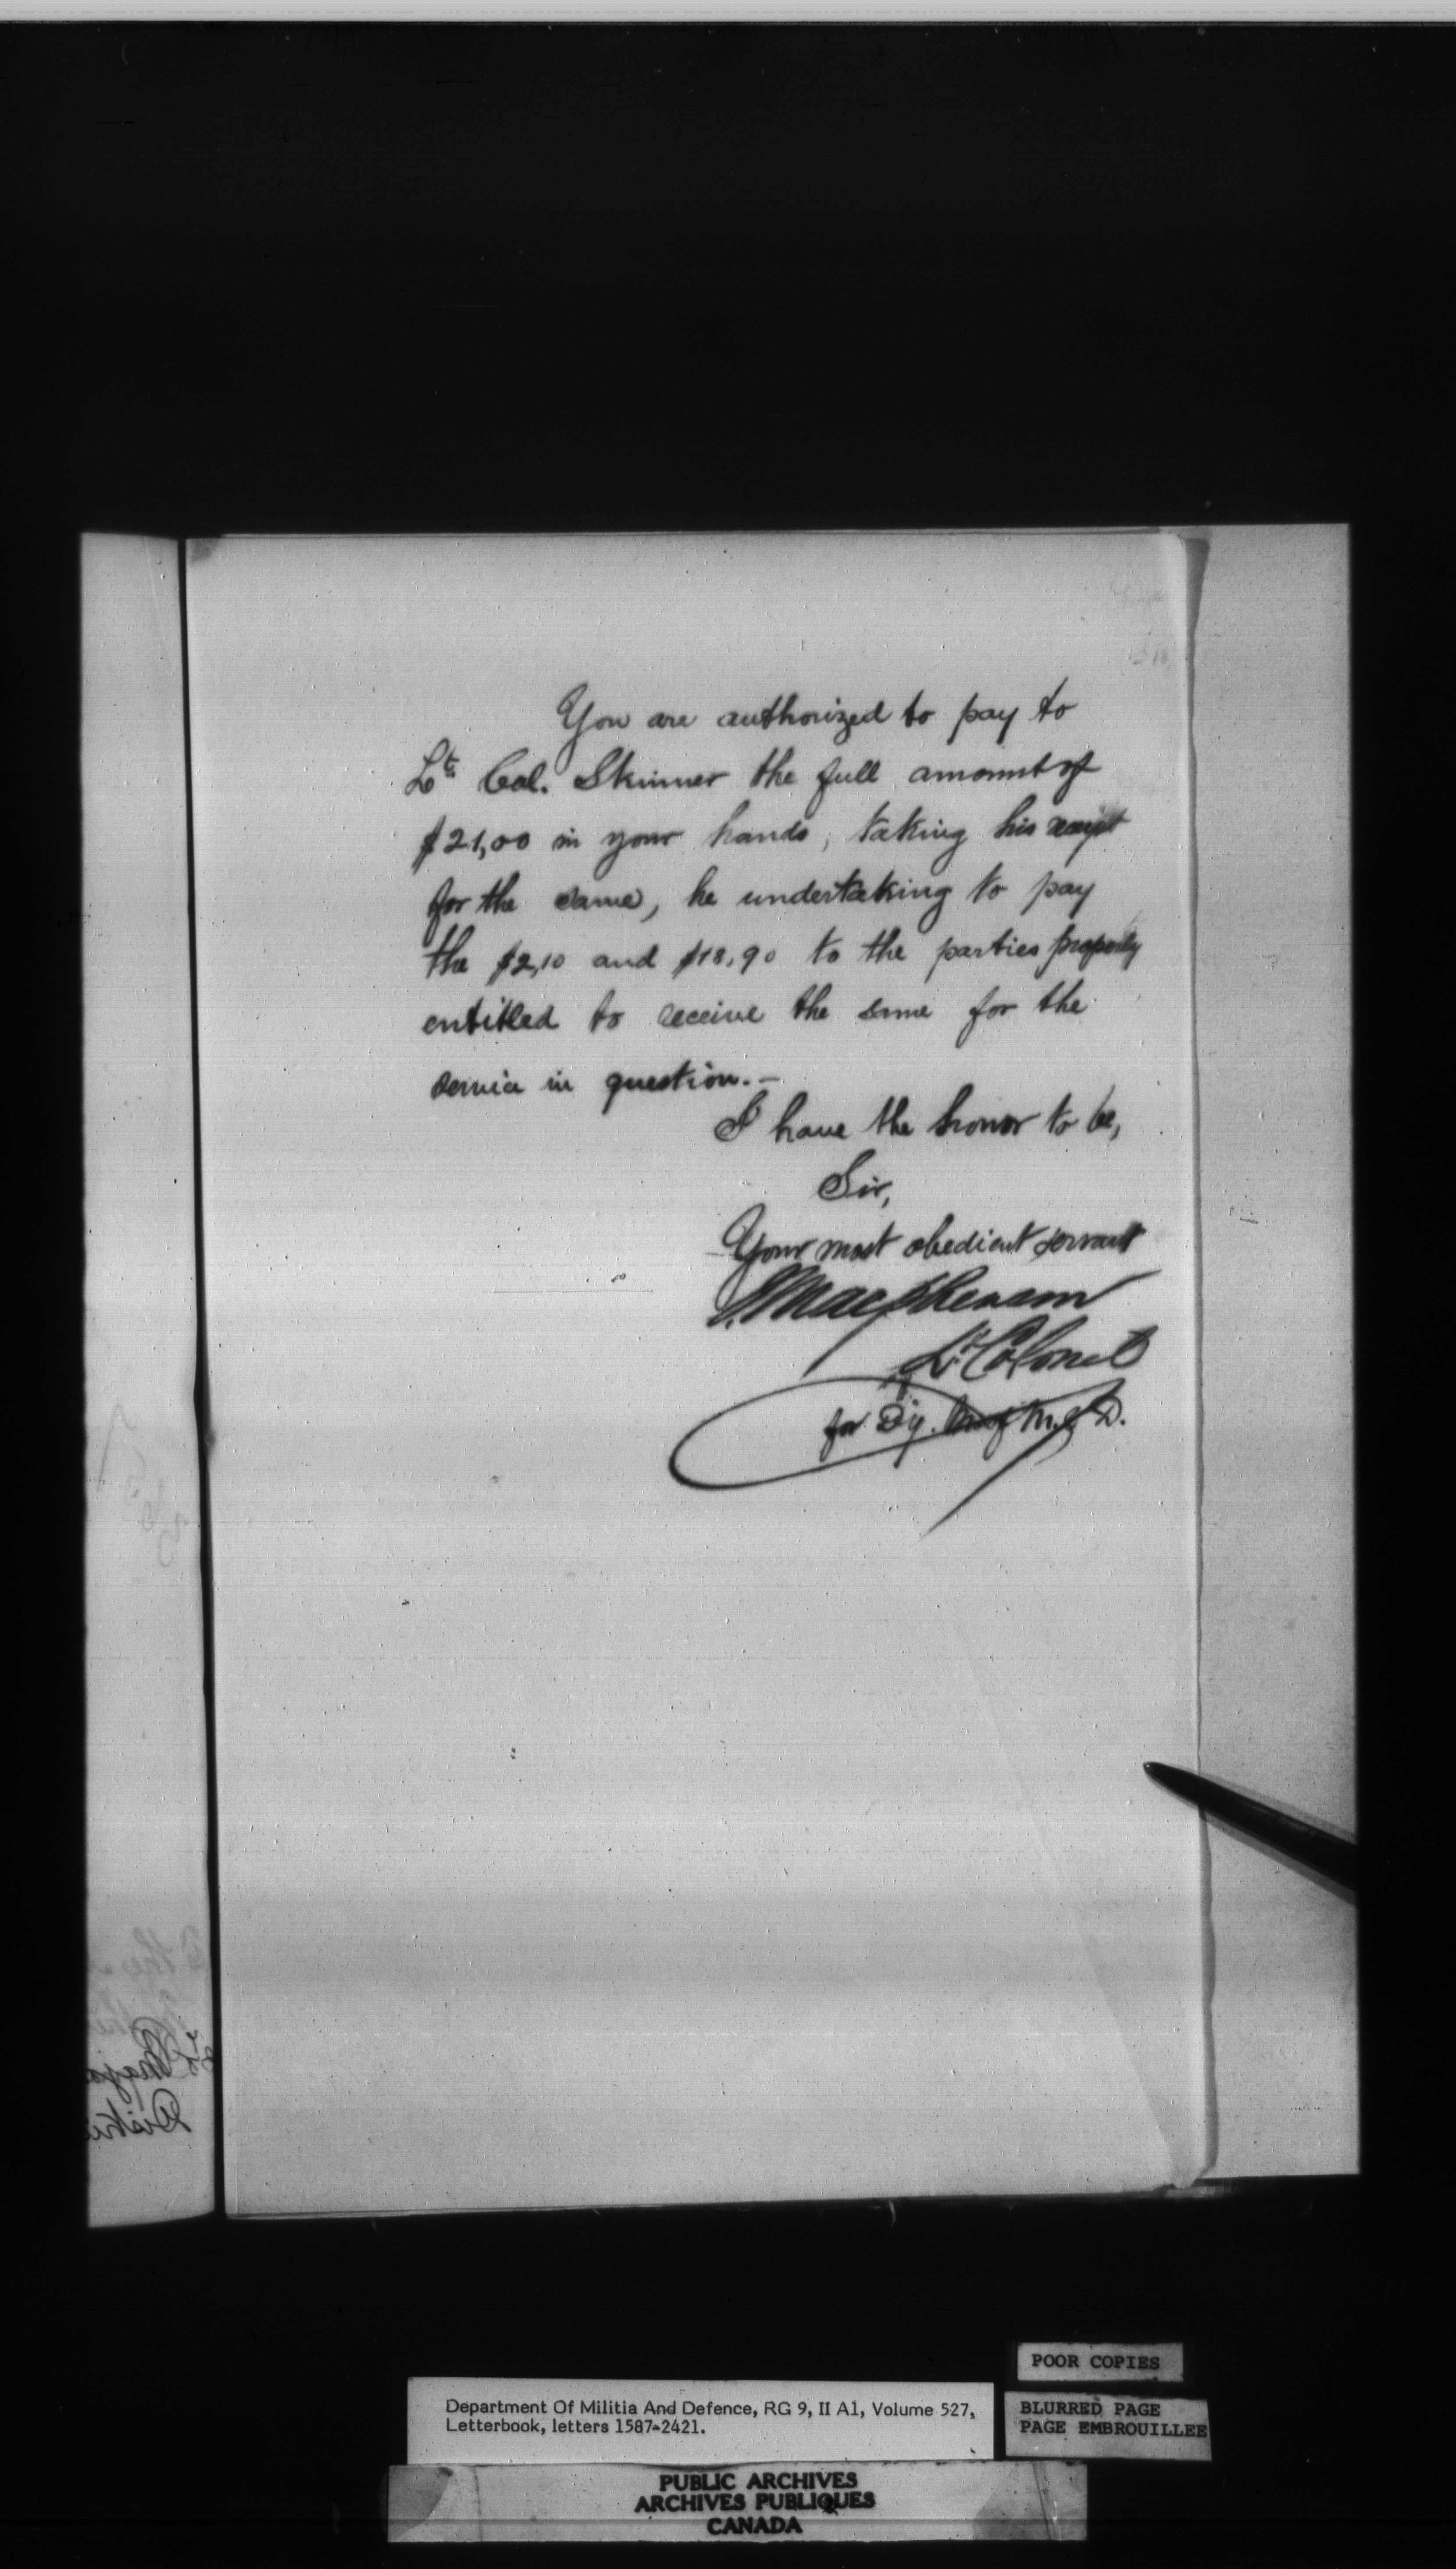 You are authorized to pay to
Lt. Col. Skinner the full amount of
$21,00 in your hands, taking his receipt
for the same, he undertaking to pay
the $2,10 and $18,90 to the parties properly
entitled to receive the same for the
service in question.—
I have the honor to be,
Sir,
Your most obedient servant
Macpherson
Lt Colonel
for Dy. M. of M. & D.
POOR COPIES
BLURRED PAGE
PAGE EMBROUILLEE
Department Of Militia And Defence, RG 9, II A1, Volume 527,
Letterbook, letters 1587-2421.
PUBLIC ARCHIVES
ARCHIVES PUBLIQUES
CANADA